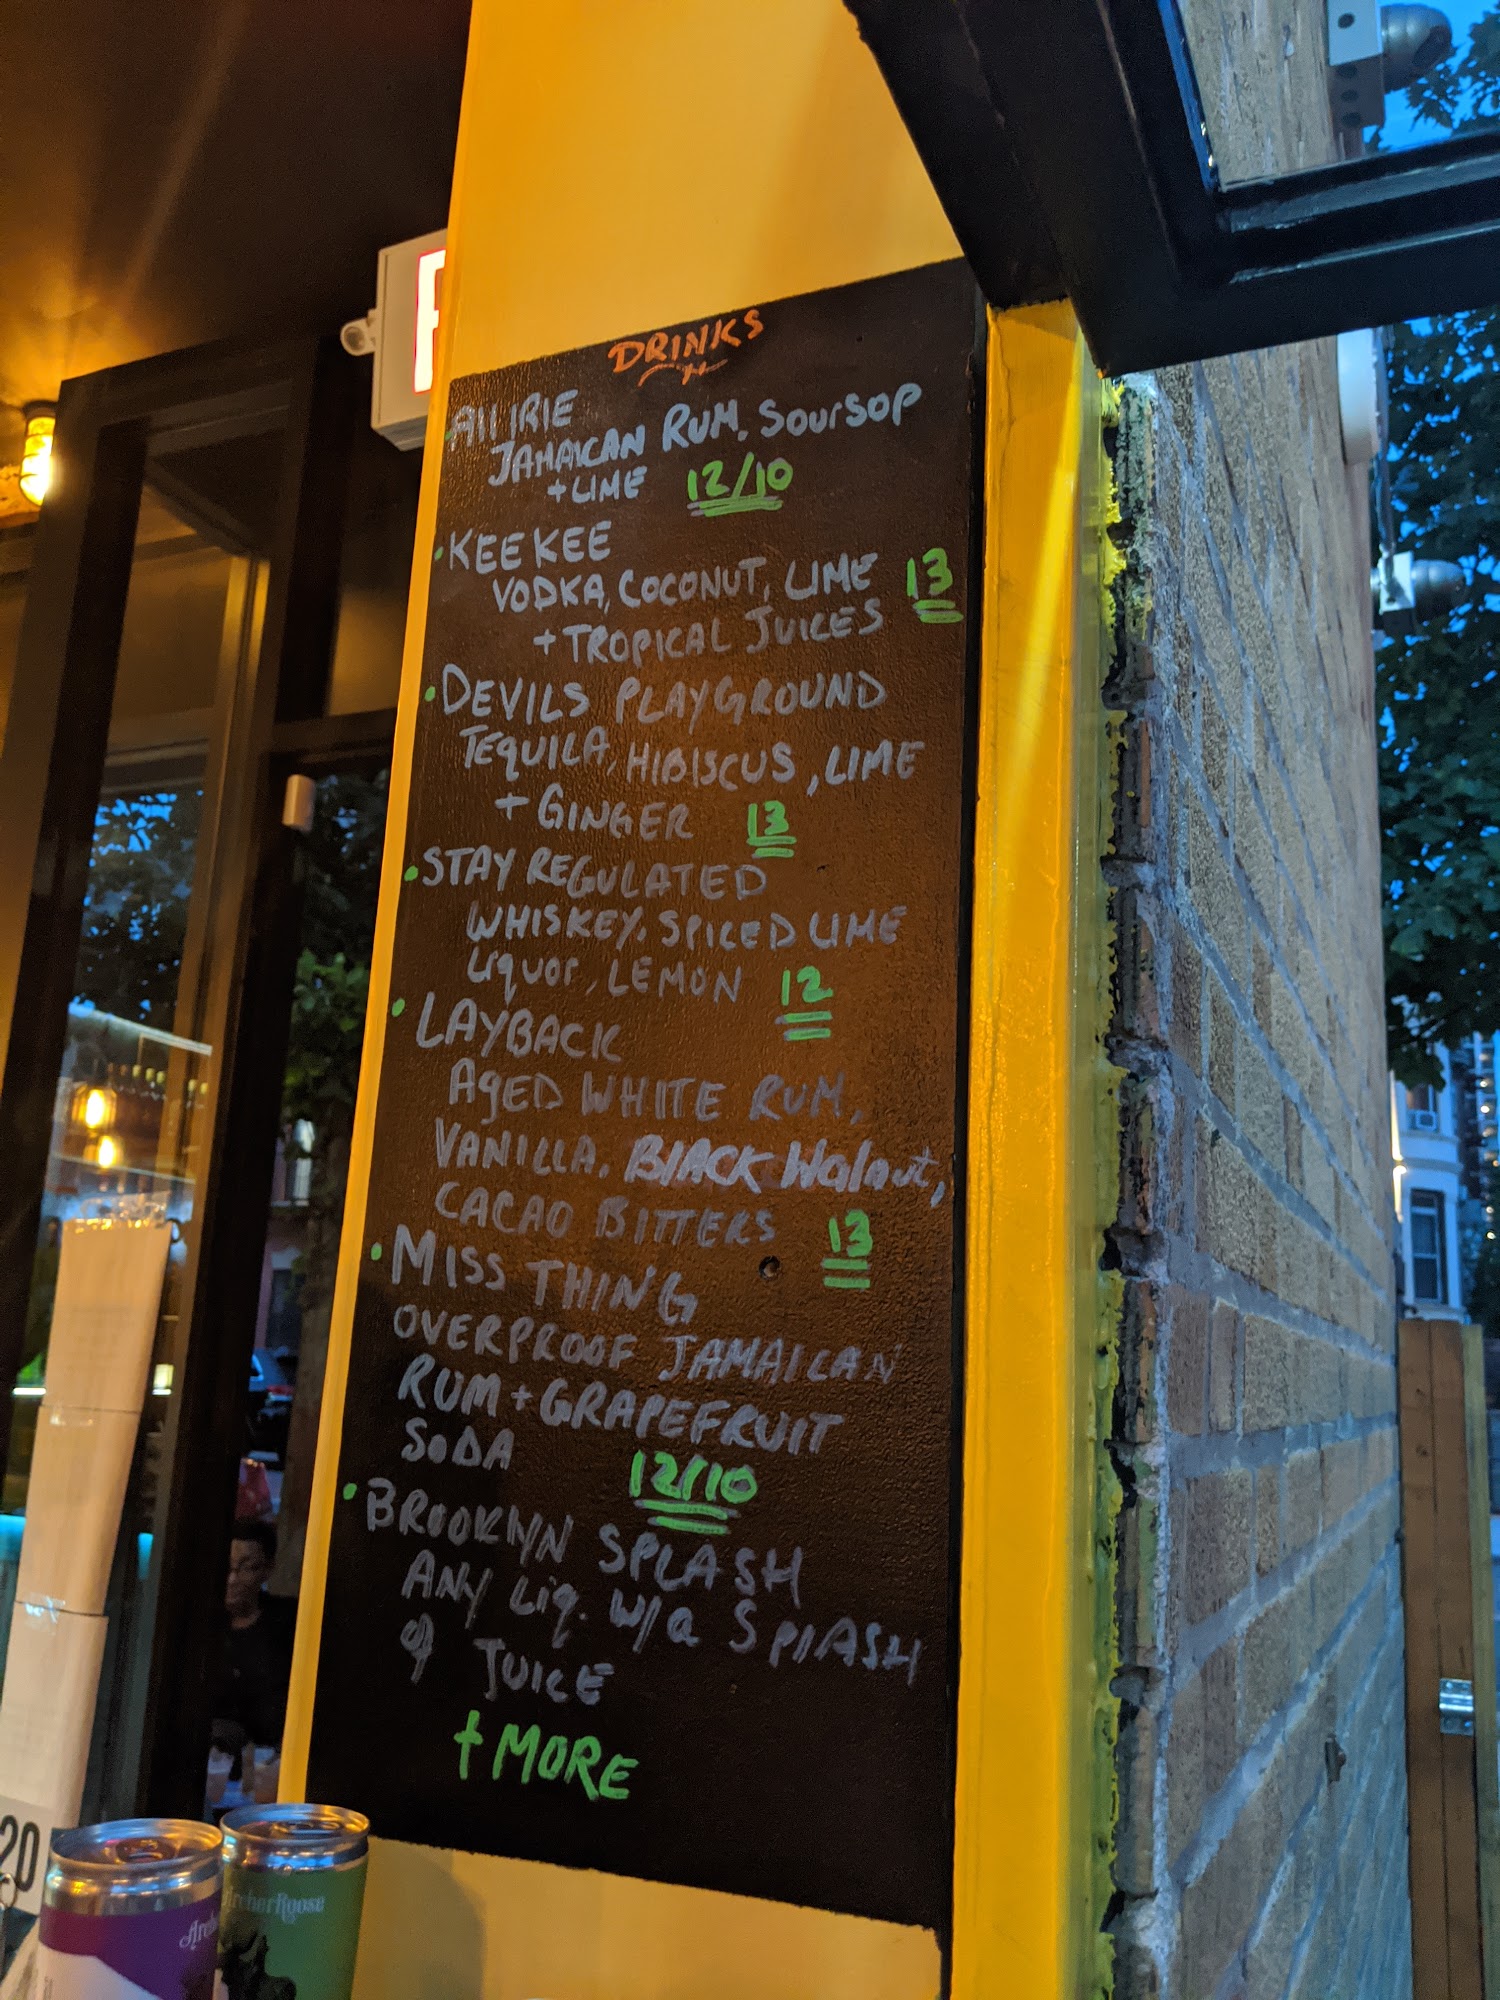 DRINKS
All IRIE
JAMAICAN RUM, Soursop
+ LIME 12/10
KEE KEE
VODKA, COCONUT, LIME 13
+ TROPICAL JUICES
DEVILS PLAYGROUND
TEQUILA, HIBISCUS, LIME
+ GINGER 13
STAY REGULATED
WHISKEY, SPICED LIME
Liquor, LEMON 12
LAYBACK
AgED WHITE RUM,
VANILLA, BLACK Walnut,
CACAO BITTERS 13
MISS THING
OVERPROOF JAMAICAN
RUM + GRAPEFRUIT
SODA 12/10
BROOKlyN SPLASH
ANy Liq. w/a SPLASH
of JUICE
+ MORE
20
ArcherRoose